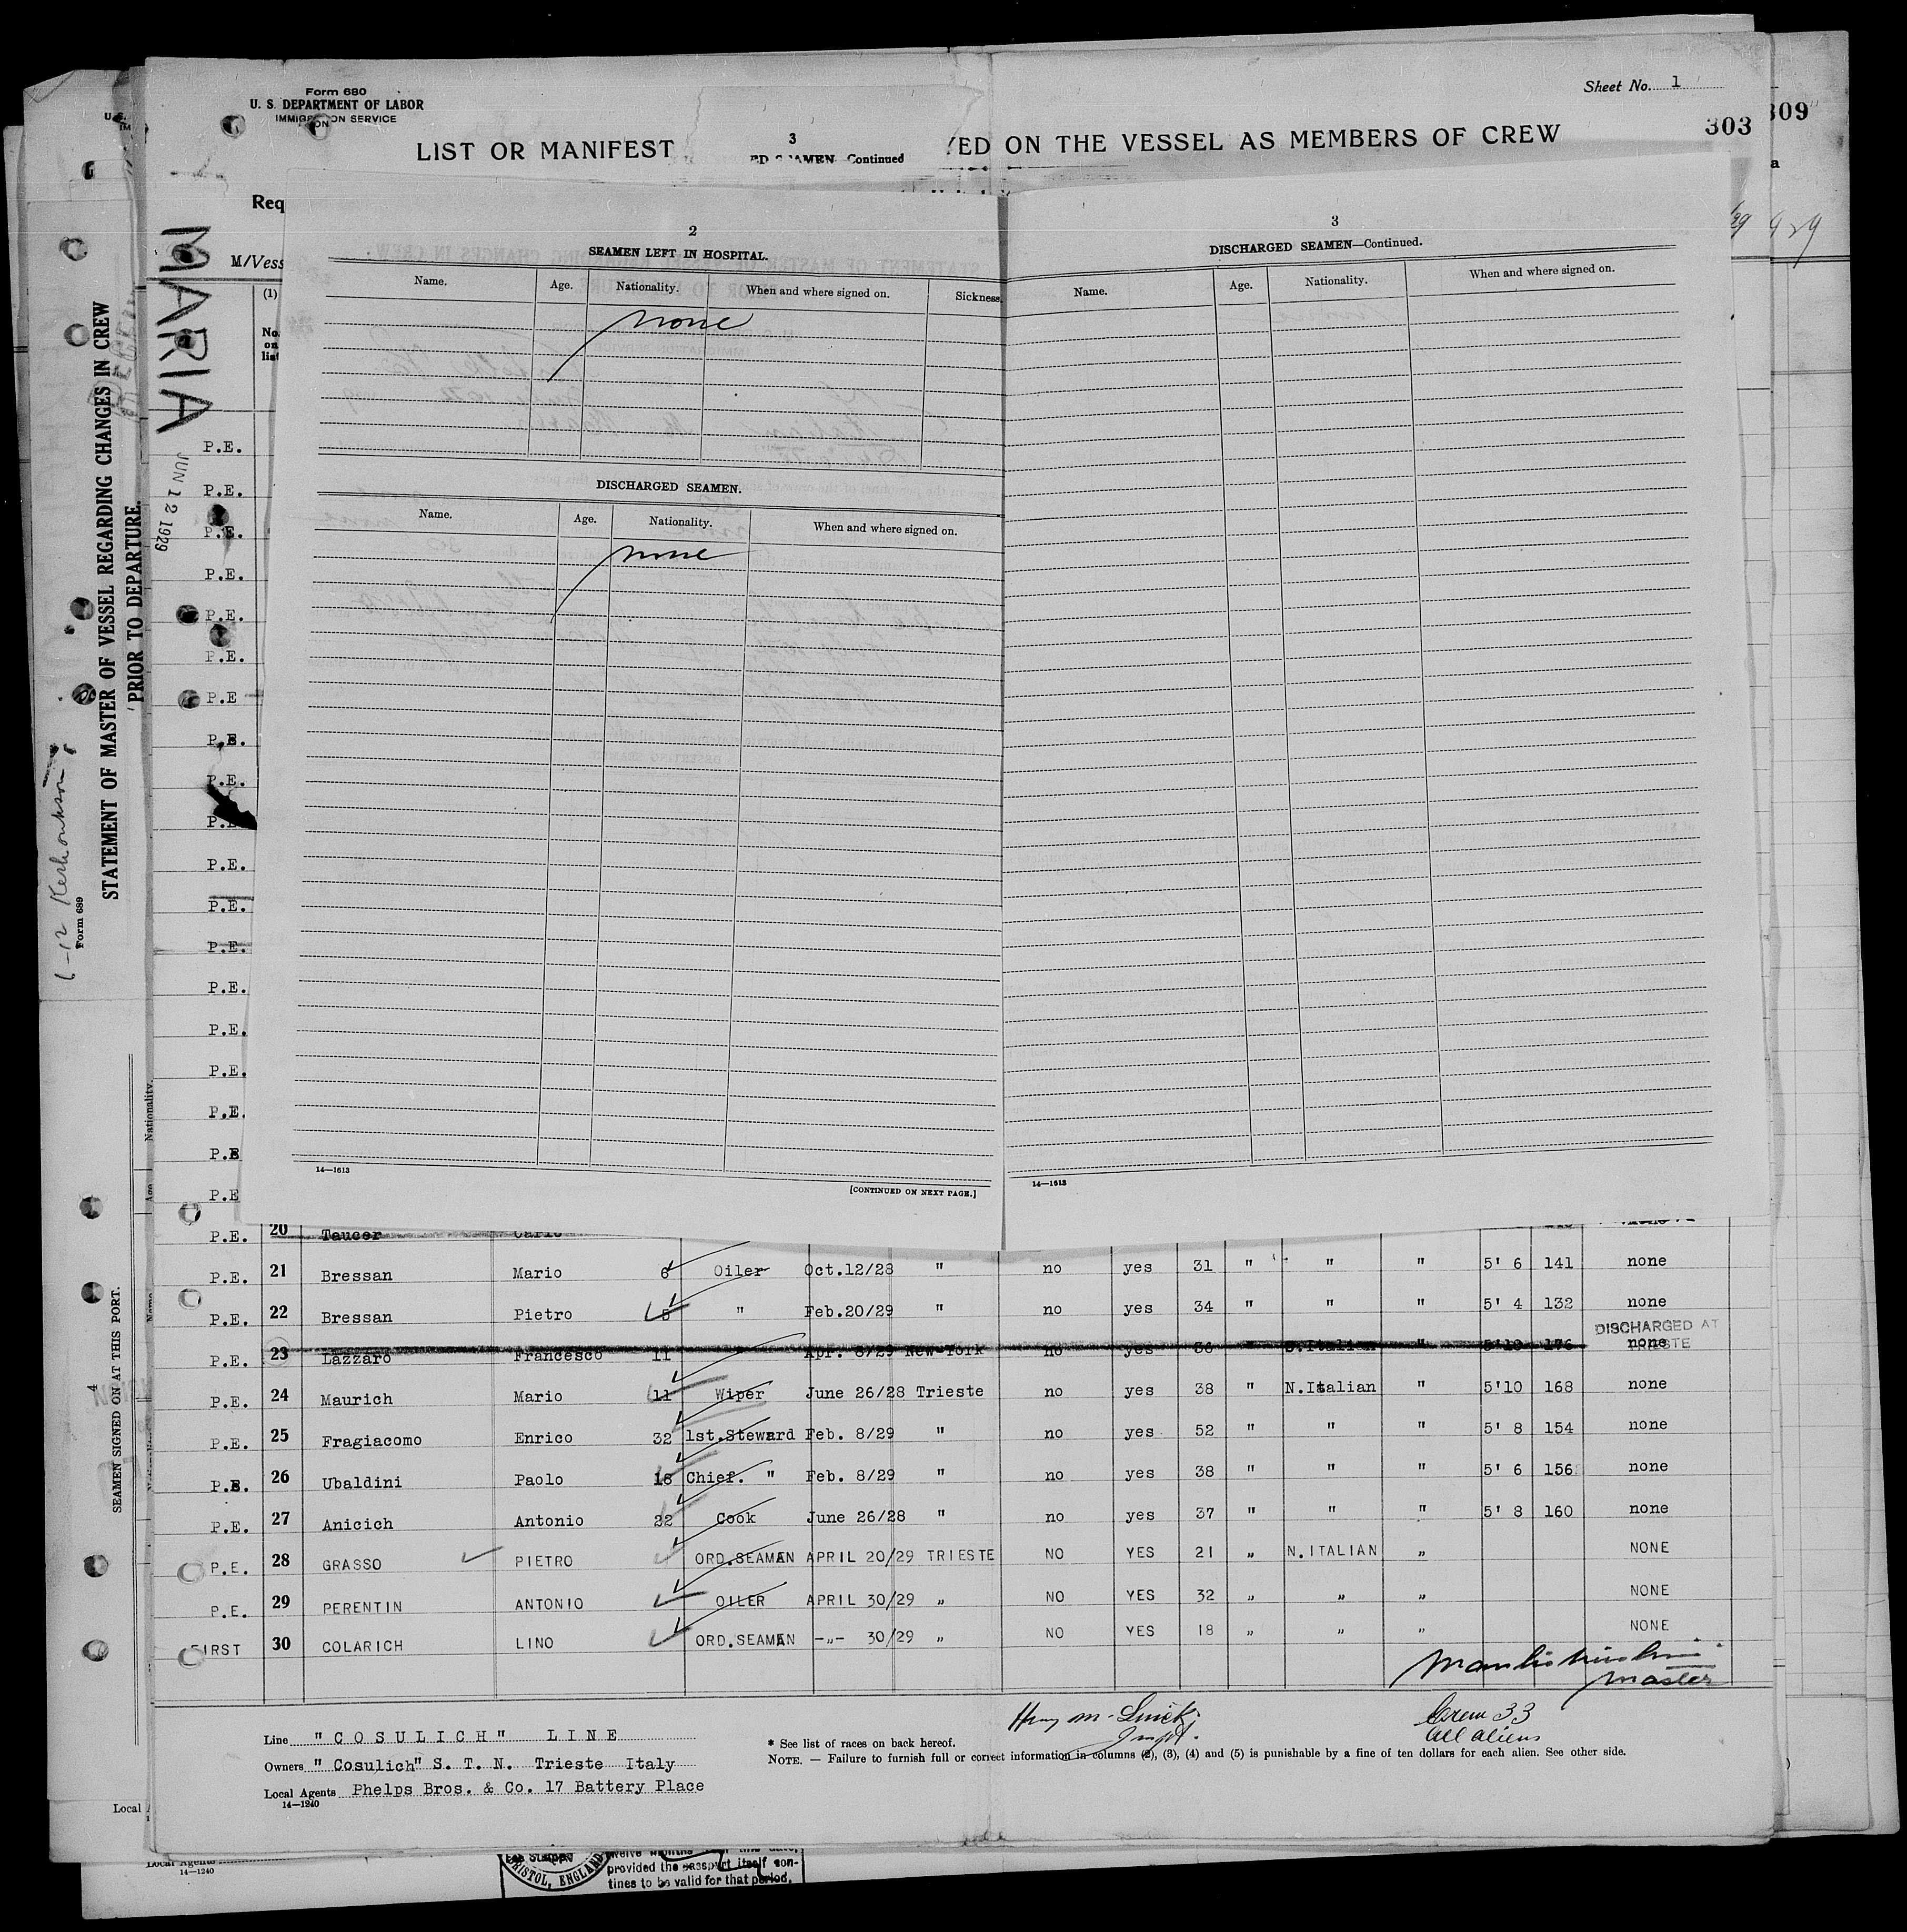 Form 680
U. S. DEPARTMENT OF LABOR
IMMIGRATION SERVICE
Sheet No. 1
303
309
LIST OR MANIFEST
3
ED SEAMEN—Continued
VED ON THE VESSEL AS MEMBERS OF CREW
Req
MARIA
JUN 12 1929
M/Vess
(1)
No. on list
STATEMENT OF MASTER OF VESSEL REGARDING CHANGES IN CREW
PRIOR TO DEPARTURE.
Form 689
4
SEAMEN SIGNED ON AT THIS PORT.
Name Age Nationality.
2
SEAMEN LEFT IN HOSPITAL.
Name. Age. Nationality. When and where signed on. Sickness.
none
DISCHARGED SEAMEN.
Name. Age. Nationality. When and where signed on.
none
14—1613
[CONTINUED ON NEXT PAGE.]
3
DISCHARGED SEAMEN—Continued.
Name. Age. Nationality. When and where signed on.
14—1613
P.E.
P.E.
P.E.
P.E.
P.E.
P.E.
P.E
P.E.
P.E.
P.E.
P.E.
P.E.
P.E.
P.E.
P.E.
P.E.
P.E.
P.E
P.E
P.E. 20 Taucer Carlo
P.E. 21 Bressan Mario 6 Oiler Oct.12/28 " no yes 31 " " " 5' 6 141 none
P.E. 22 Bressan Pietro 5 " Feb.20/29 " no yes 34 " " " 5' 4 132 none
DISCHARGED AT
P.E. 23 Lazzaro Francesco 11 " Apr. 8/29 New York no yes 36 " S.Italian " 5'10 176 none
P.E. 24 Maurich Mario 11 Wiper June 26/28 Trieste no yes 38 " N.Italian " 5'10 168 none
P.E. 25 Fragiacomo Enrico 32 1st.Steward Feb. 8/29 " no yes 52 " " " 5' 8 154 none
P.E. 26 Ubaldini Paolo 18 Chief. " Feb. 8/29 " no yes 38 " " " 5' 6 156 none
P.E. 27 Anicich Antonio 22 Cook June 26/28 " no yes 37 " " " 5' 8 160 none
P.E. 28 GRASSO PIETRO ORD.SEAMAN APRIL 20/29 TRIESTE NO YES 21 " N.ITALIAN " NONE
P.E. 29 PERENTIN ANTONIO OILER APRIL 30/29 " NO YES 32 " " " NONE
FIRST 30 COLARICH LINO ORD.SEAMAN -"- 30/29 " NO YES 18 " " " NONE
Master
Crew 33
All aliens
Line "COSULICH" LINE
Owners "Cosulich" S. T. N. Trieste Italy
Local Agents Phelps Bros. & Co. 17 Battery Place
14—1240
* See list of races on back hereof.
NOTE. — Failure to furnish full or correct information in columns (2), (3), (4) and (5) is punishable by a fine of ten dollars for each alien. See other side.
Local Agents
14—1240
BRISTOL, ENGLAND
provided the passport itself con-
tines to be valid for that period,